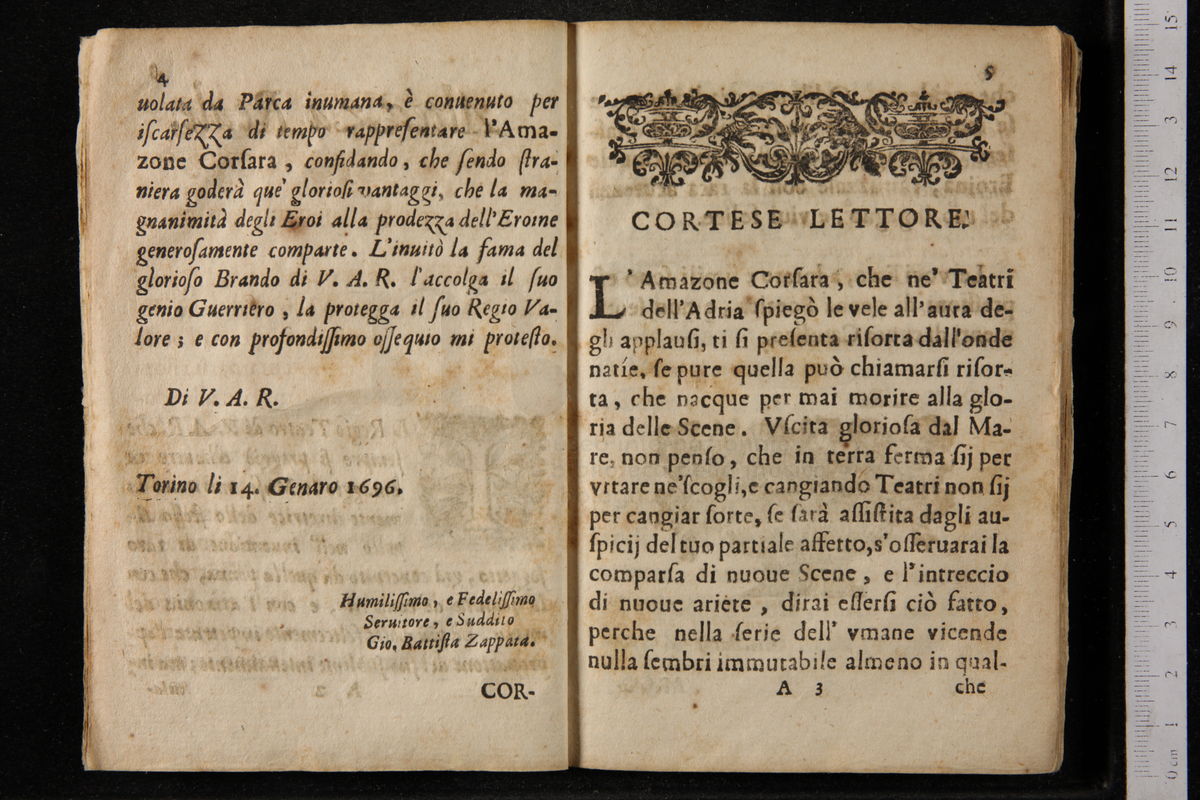 4
uolata da Parca inumana, è conuenuto per
iſcarſezza di tempo rappreſentare l'Ama-
zone Corſara, confidando, che ſendo ſtra-
niera goderà que' glorioſi vantaggi, che la ma-
gnanimità degli Eroi alla prodezza dell'Eroine
generoſamente comparte. L'inuitò la fama del
glorioſo Brando di V. A. R. l'accolga il ſuo
genio Guerriero, la protegga il ſuo Regio Va-
lore; e con profondiſſimo oſſequio mi proteſto.
Di V. A. R.
Torino li 14. Genaro 1696.
Humiliſſimo, e Fedeliſſimo
Seruitore, e Suddito
Gio. Battiſta Zappata.
COR-
5
CORTESE LETTORE.
L'Amazone Corſara, che ne' Teatri
dell'Adria ſpiegò le vele all'aura de-
gli applauſi, ti ſi preſenta riſorta dall'onde
natíe, ſe pure quella può chiamarſi riſor-
ta, che nacque per mai morire alla glo-
ria delle Scene. Vſcita glorioſa dal Ma-
re, non penſo, che in terra ferma ſij per
vrtare ne'ſcogli, e cangiando Teatri non ſij
per cangiar ſorte, ſe ſarà aſſiſtita dagli au-
ſpicij del tuo partiale affetto, s'oſſeruarai la
comparſa di nuoue Scene, e l'intreccio
di nuoue ariete, dirai eſſerſi ciò fatto,
perche nella ſerie dell' vmane vicende
nulla ſembri immutabile almeno in qual-
A 3
che
0 cm 1 2 3 4 5 6 7 8 9 10 11 12 13 14 15